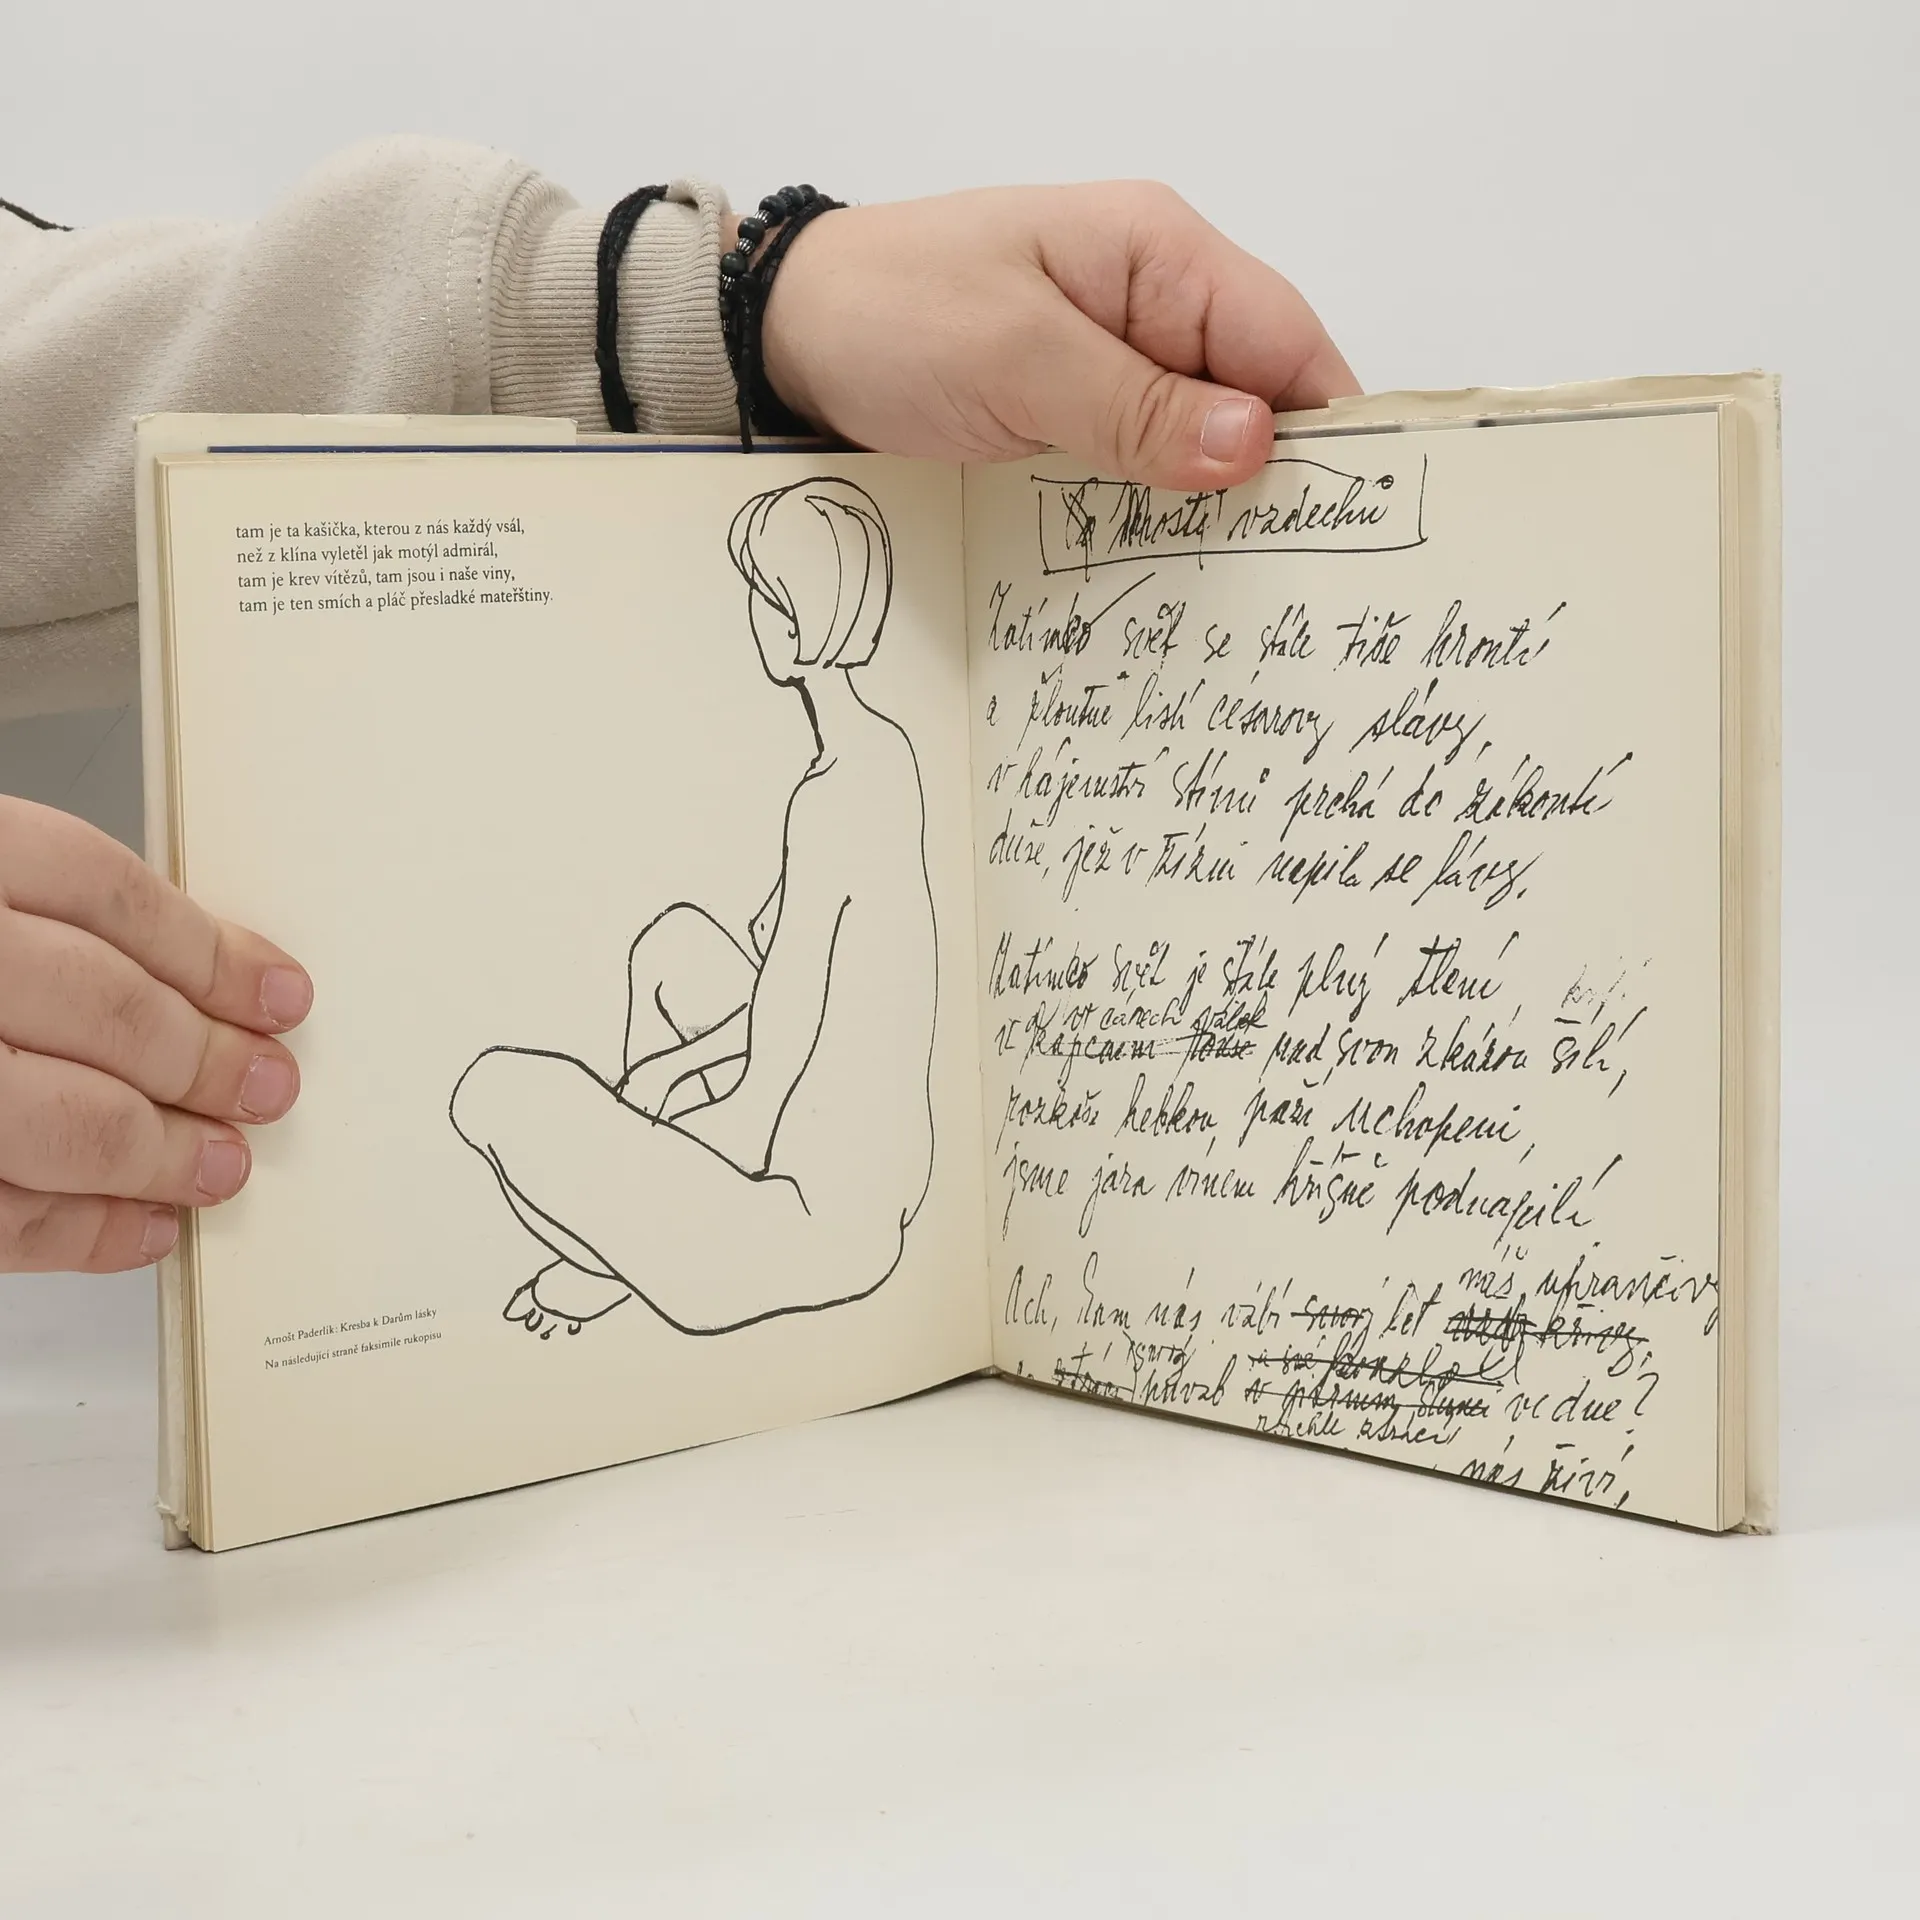 tam je ta kašička, kterou z nás každý vsál,
než z klína vyletěl jak motýl admirál,
tam je krev vítězů, tam jsou i naše viny,
tam je ten smích a pláč přesladké mateřštiny.
Arnošt Paderlík: Kresba k Darům lásky
Na následující straně faksimile rukopisu
vzdechů
Zatímco svět se stále tiše hroutí
a žloutne listí césarovy slávy,
v hájemství stínů prchá do zákoutí
duše, jež v žízni napila se lávy.
Zatímco svět je stále plný tlení,
v cárech válek
nad svou zkázou šílí,
rozkoší hebkou paží uchopeni,
jsme jara vínem hříšně podnapilí
náš uhrančivý
Ach, kam nás vábí let
svůj
půvab ve dne?
rychle ztrácí
nás živí,